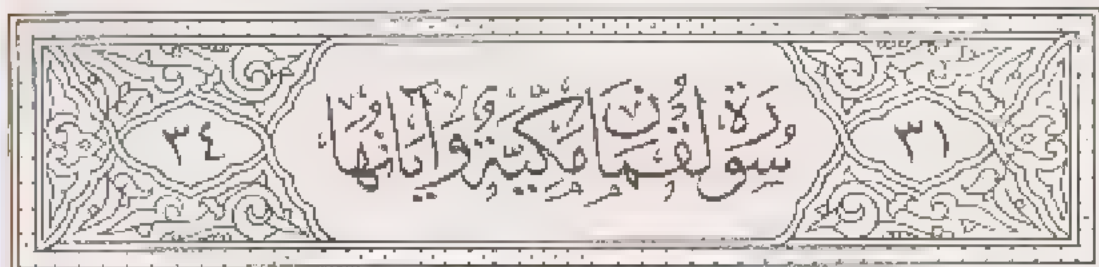 ٣١
سُورَةُ لُقْمَانَ مَكِّيَّةٌ وَآيَاتُهَا
٣٤